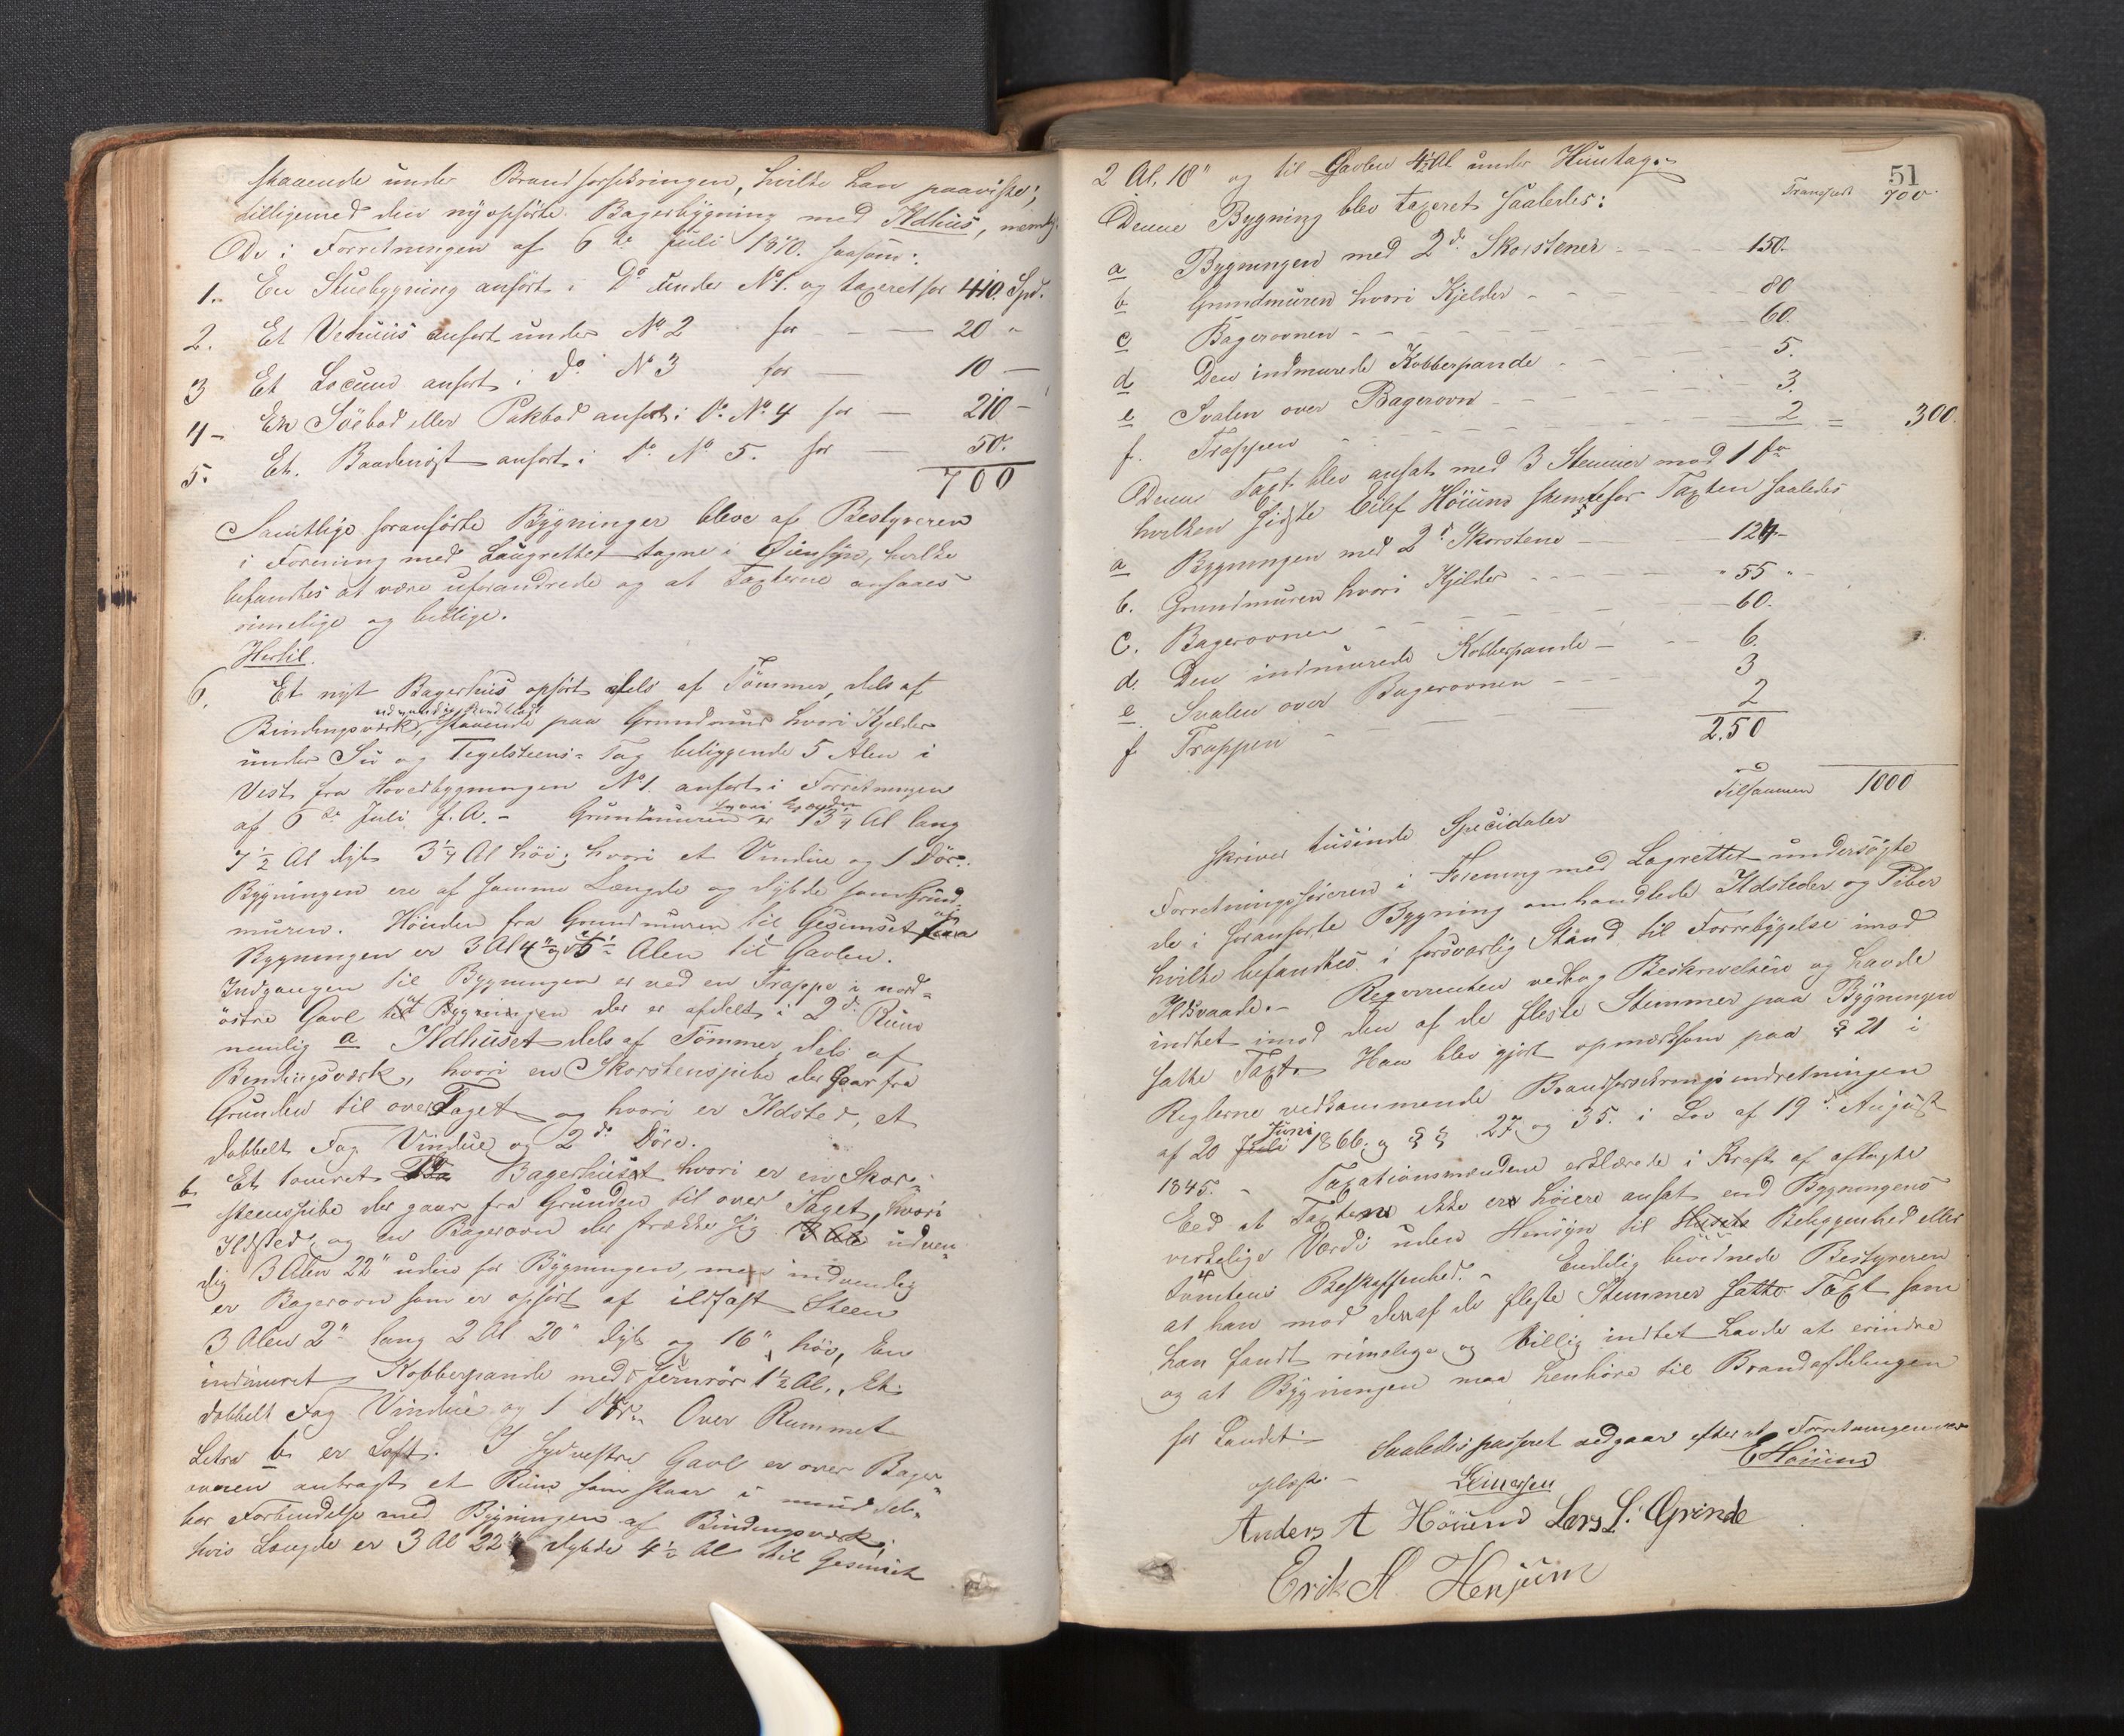 staaende under Brandforsikringen, hvilke han paaviste;
tilligemed den nyopførte Bagerbygning med Ildhus, nemlig.
De i Forretningen af 6te Juli 1870. saasom:
1. En Stuebygning anført i Do under No 1. og taxeret for 410. Spd.
2. Et Vedhuus anført under No 2 for — — 20 "
3 Et Locum anført i do No 3 for — 10 —
4 — En Søebod eller Pakbod anført i Do. No. 4 for — 210 —
5. Et. Baadenøst anført i Do. No 5. for — 50.
700
Samtlige foranførte Bygninger bleve af Bestyreren
i Forening med Laugrettet tagne i Øiensyn, hvilke
befandtes at være uforandrede og at Taxterne ansaaes
rimelige og billige.
Hertil.
6. Et nyt Bagerhus opført dels af Tømmer, dels af
Bindingsværk, udvendig bordklædt staaende paa Grundmur hvori Kjelder
under Su og Tegelsteens-Tag beliggende 5 Alen i
Vest fra Hovedbygningen No 1. anført i Forretningen
af 6te Juli f. A. — Grundmuren hvori Kjelder er 13 1/4 Al lang
7 1/2 Al dyb 3 1/4 Al høi; hvori et Vindue og 1 Dør.
Bygningen ere af samme Længde og Dybde som Grund-
muren. Høiden fra Grundmuren til Gesimset paa
Bygningen er 3 Al 4" og 5 1/2 Alen til Gavlen.
Indgangen til Bygningen er ved en Trappe i nord-
østre Gavl til Bygningen der er afdelt i 2de Rum
nemlig a Ildhuset dels af Tømmer, dels af
Bindingsværk, hvori en Skorstenspibe der gaar fra
Grunden til over Taget og hvori er Ildsted, et
dobbelt Fag Vindue og 2de Døre.
b Et tømret Bagerhuset hvori er en Skor-
steenspibe der gaar fra Grunden til over Taget, hvori
Ildsted og en Bagerovn der strække sig 3 Al udven-
dig 3 Alen 22" uden for Bygningen, men indvendig
er Bagerovn som er opført af ildfast Steen
3 Alen 2" lang 2 Al 20" dyb og 16" høi, En
indmuret Kobberpande med Jernrør 1 1/2 Al., Et
dobbelt Fag Vindue og 1 Dør. Over Rummet
Litra b er Loft. I Sydvestre Gavl er over Bager-
ovnen anbragt et Rum som staar i umiddel-
bar Forbindelse med Bygningen af Bindingsværk,
hvis Længde er 3 Al 22" Dybde 4 1/2 Al til Gesimset
51
2 Al. 18" og til Gavlen 4 1/2 Al under Huustaget
Transport 700.
Denne Bygning blev taxeret saaledes:
a Bygningen med 2de Skorstener — — 150.
b Grundmuren hvori Kjelder — — 80
c Bagerovnen — — 60.
d Den indmurede Kobberpande — — 5.
e Svalen over Bagerovn — — 3.
f. Trappen — — 2 = 300
Denne Taxt blev ansat med 3 Stemmer mod 1 fra
hvilken sidste Eilef Høium stemte for Taxten saaledes
a Bygningen med 2de Skorstene — — 124 —
b. Grundmuren hvori Kjelder — — " 55 "
c. Bagerovnen — — 60.
d. Den indmurede Kobberpande — — 6.
e Svalen over Bagerovnen — — 3
f Trappen — — 2
2.50
Tilsammen 1000
skriver tusinde Specidaler
Forretningsføreren i Forening med Lagrettet undersøgte
de i foranførte Bygning omhandlede Ildsteder og Piber
hvilke befandtes i forsvarlig Stand til Forrebygelse imod
Ildsvaade. — Reqvirenten vedtog Beskrivelsen og havde
indtet imod den af de fleste Stemmer paa Bygningen
satte Taxt. Han blev gjort opmærksom paa § 21 i
Reglerne vedkommende Brandforsikringsindretningen
af 20 Juli Juni 1866. og §§ 27 og 35. i Lov af 19de August
1845. — Taxationsmændene erklærede i Kraft af aflagte
Eed at Taxterne ikke ere høiere ansat end Bygningens
virkelige Værdi uden Hensyn til Husets Beliggenhed eller
Tomtens Beskaffenhed. — Endelig bevidnede Bestyreren
at han mod den af de fleste Stemmer satte Taxt som
han fandt rimelige og billig indtet havde at erindre
og at Bygningen maa henhøre til Brandafdelingen
for Landet. Saaledes passeret vedgaar efterat Forretningen var
oplæst. — EHøium
Anders A Høium Lars L. Grinde
Erik A. Henjum